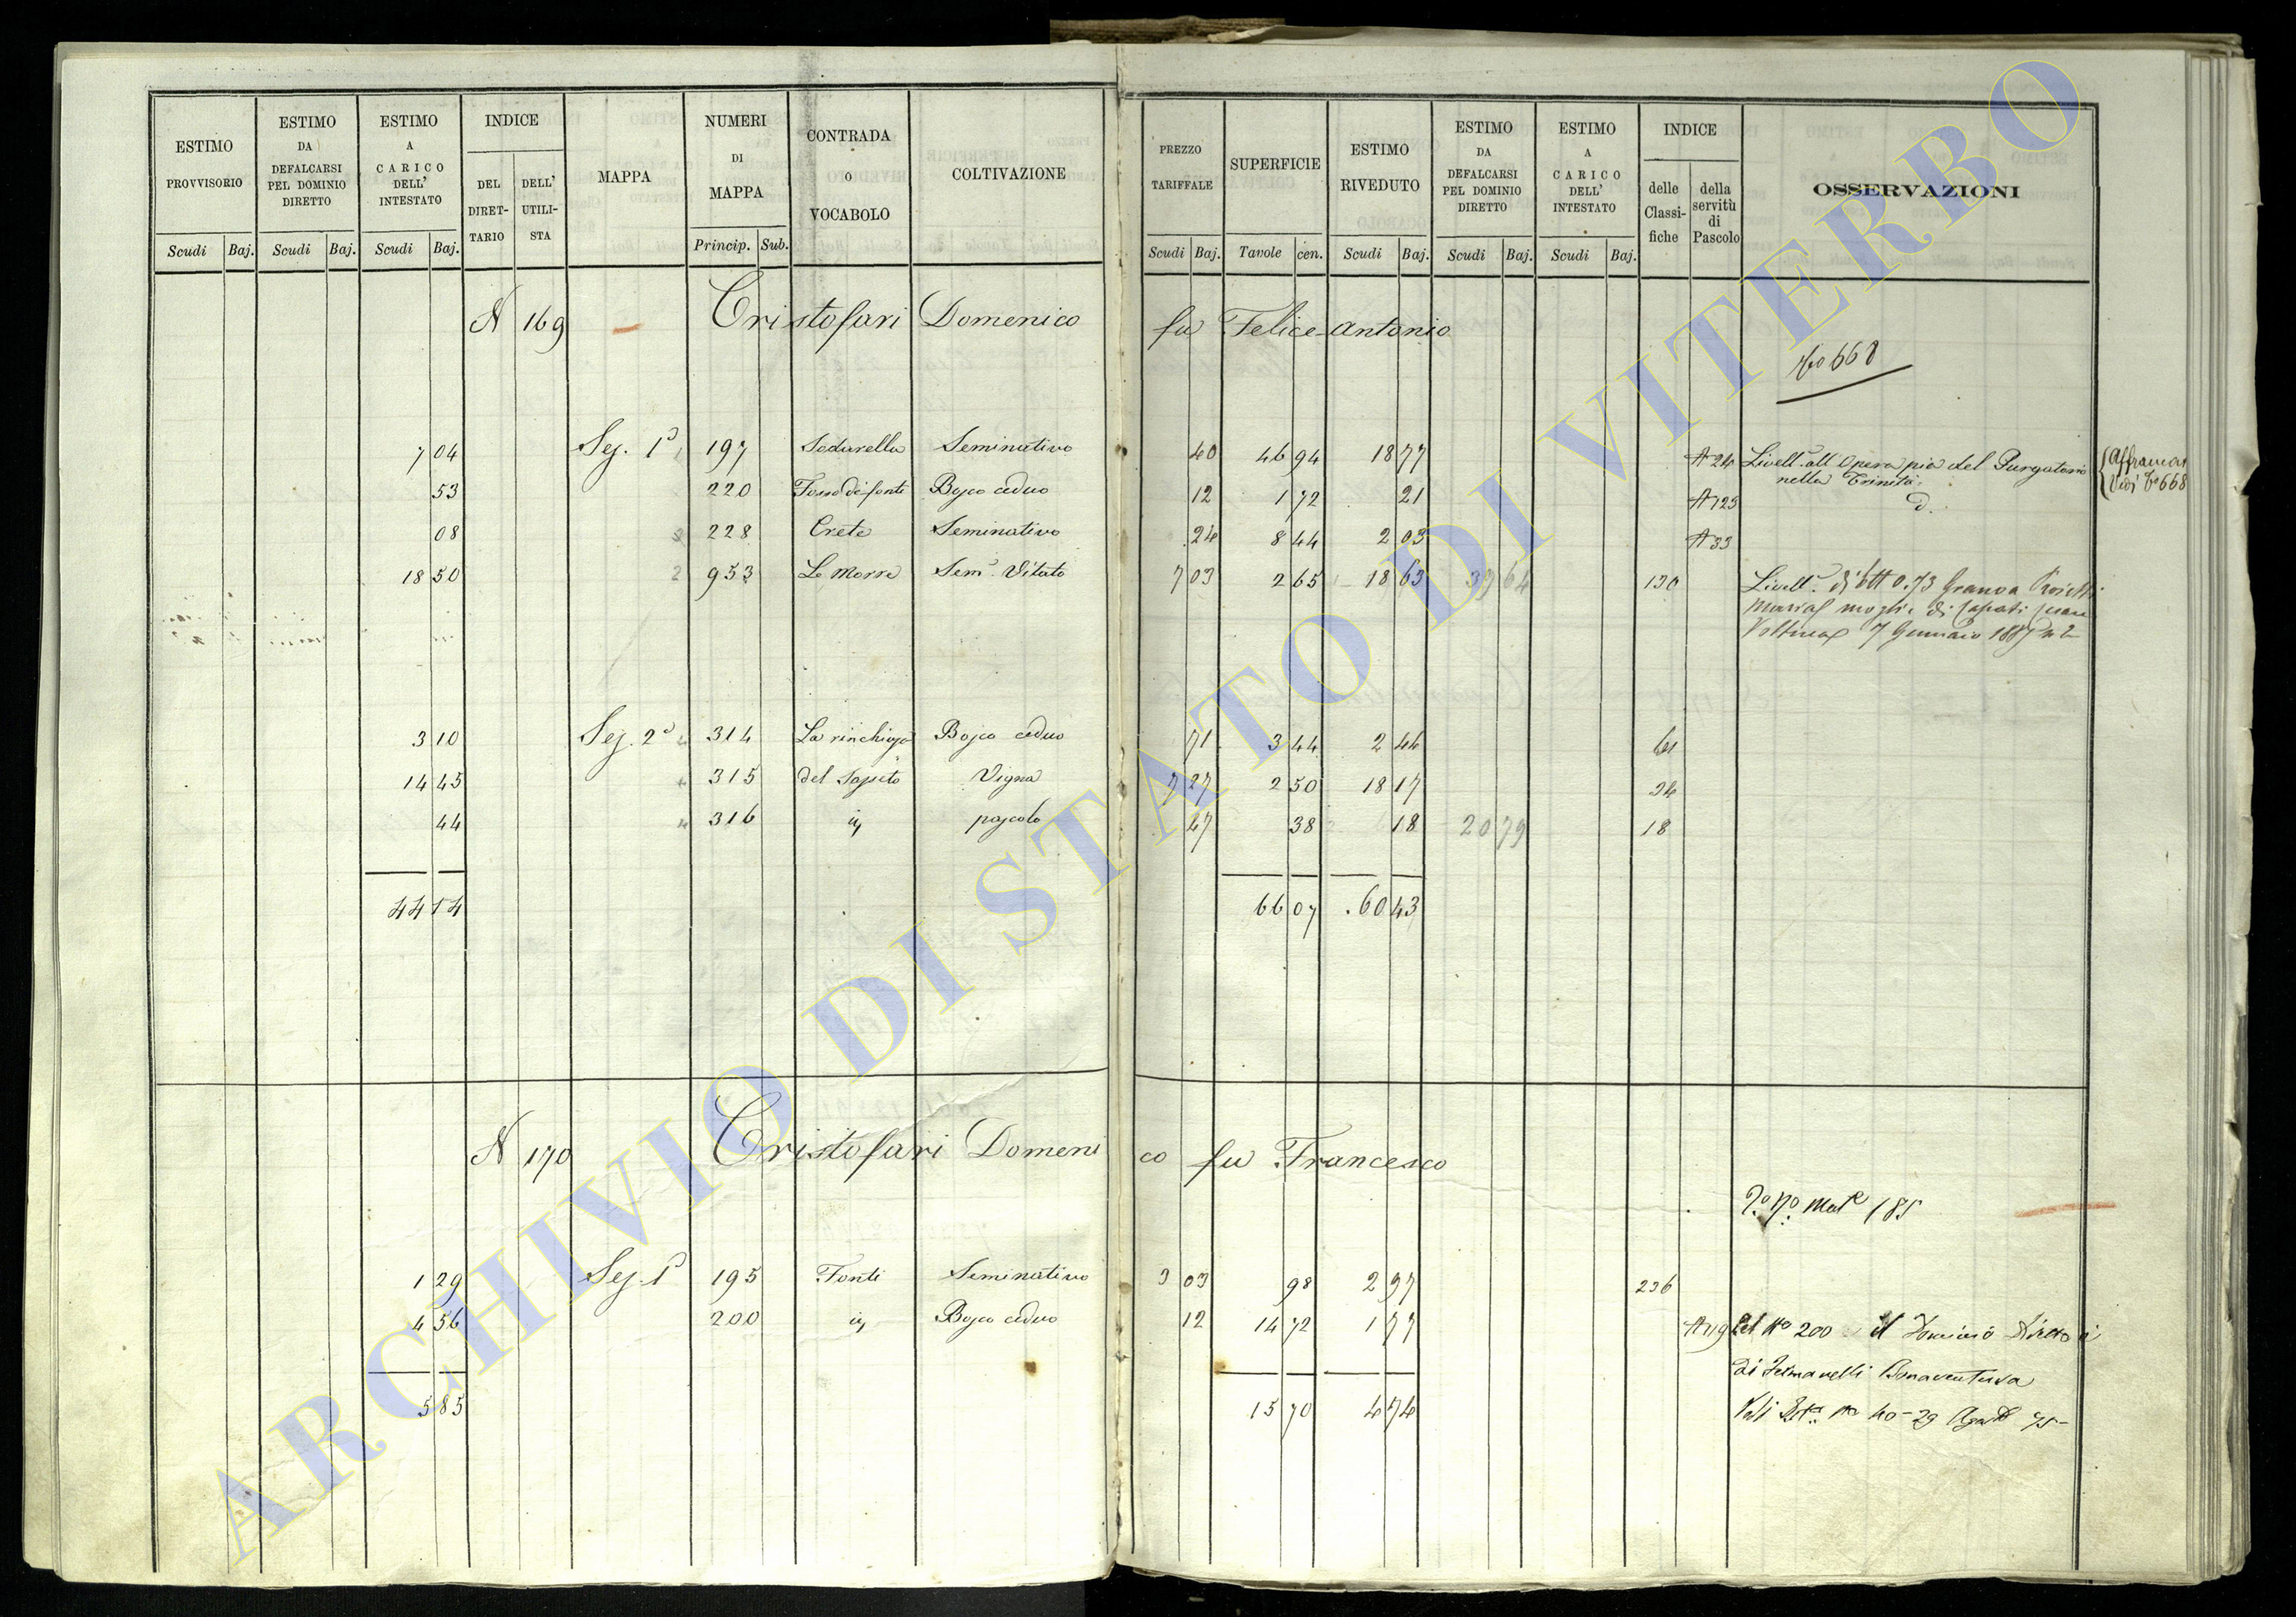 ESTIMO PROVVISORIO
ESTIMO DA DEFALCARSI PEL DOMINIO DIRETTO
ESTIMO A CARICO DELL' INTESTATO
INDICE
DEL DIRET-TARIO
DELL' UTILI-STA
MAPPA
NUMERI DI MAPPA
CONTRADA O VOCABOLO
COLTIVAZIONE
PREZZO TARIFFALE
SUPERFICIE
ESTIMO RIVEDUTO
ESTIMO DA DEFALCARSI PEL DOMINIO DIRETTO
ESTIMO A CARICO DELL' INTESTATO
INDICE
delle Classi-fiche
della servitù di Pascolo
OSSERVAZIONI
Scudi Baj. Scudi Baj. Scudi Baj. Princip. Sub. Scudi Baj. Tavole cen. Scudi Baj. Scudi Baj. Scudi Baj.
N 169 Cristofari Domenico fu Felice Antonio
668
7 04 Sez. 1ª 197 Sodarella Seminativo 40 46 94 18 77 A 24 Livell. all Opera pia del Purgatorio
nella Trinità
Vedi 668
53 220 Fosso di fonti Bosco ceduo 12 1 72 21 A 125 d.
08 228 Crete Seminativo 24 8 44 2 03 A 33
18 50 2 953 Le Morre Sem. Vitato 7 03 2 65 18 63 39 64 130 Livell.
moglie di
Voltura 7 Gennaio 1887 n 2
3 10 Sez. 2ª 4 314 La rinchiusa Bosco ceduo 71 3 44 2 44 61
14 45 4 315 del Sapito Vigna 7 27 2 50 18 17 24
44 4 316 iy pascolo 47 38 18 20 79 18
44 14 66 07 60 43
N 170 Cristofari Domenico fu Francesco
185
1 29 Sez. 1ª 195 Fonti Seminativo 3 03 98 2 97 236
4 56 200 iy Bosco ceduo 12 14 72 1 77 A 119 Del No 200 il Dominio Diretto è
di Bonaventura
5 85 15 70 4 74 40 - 29 Agosto 75
ARCHIVIO DI STATO DI VITERBO